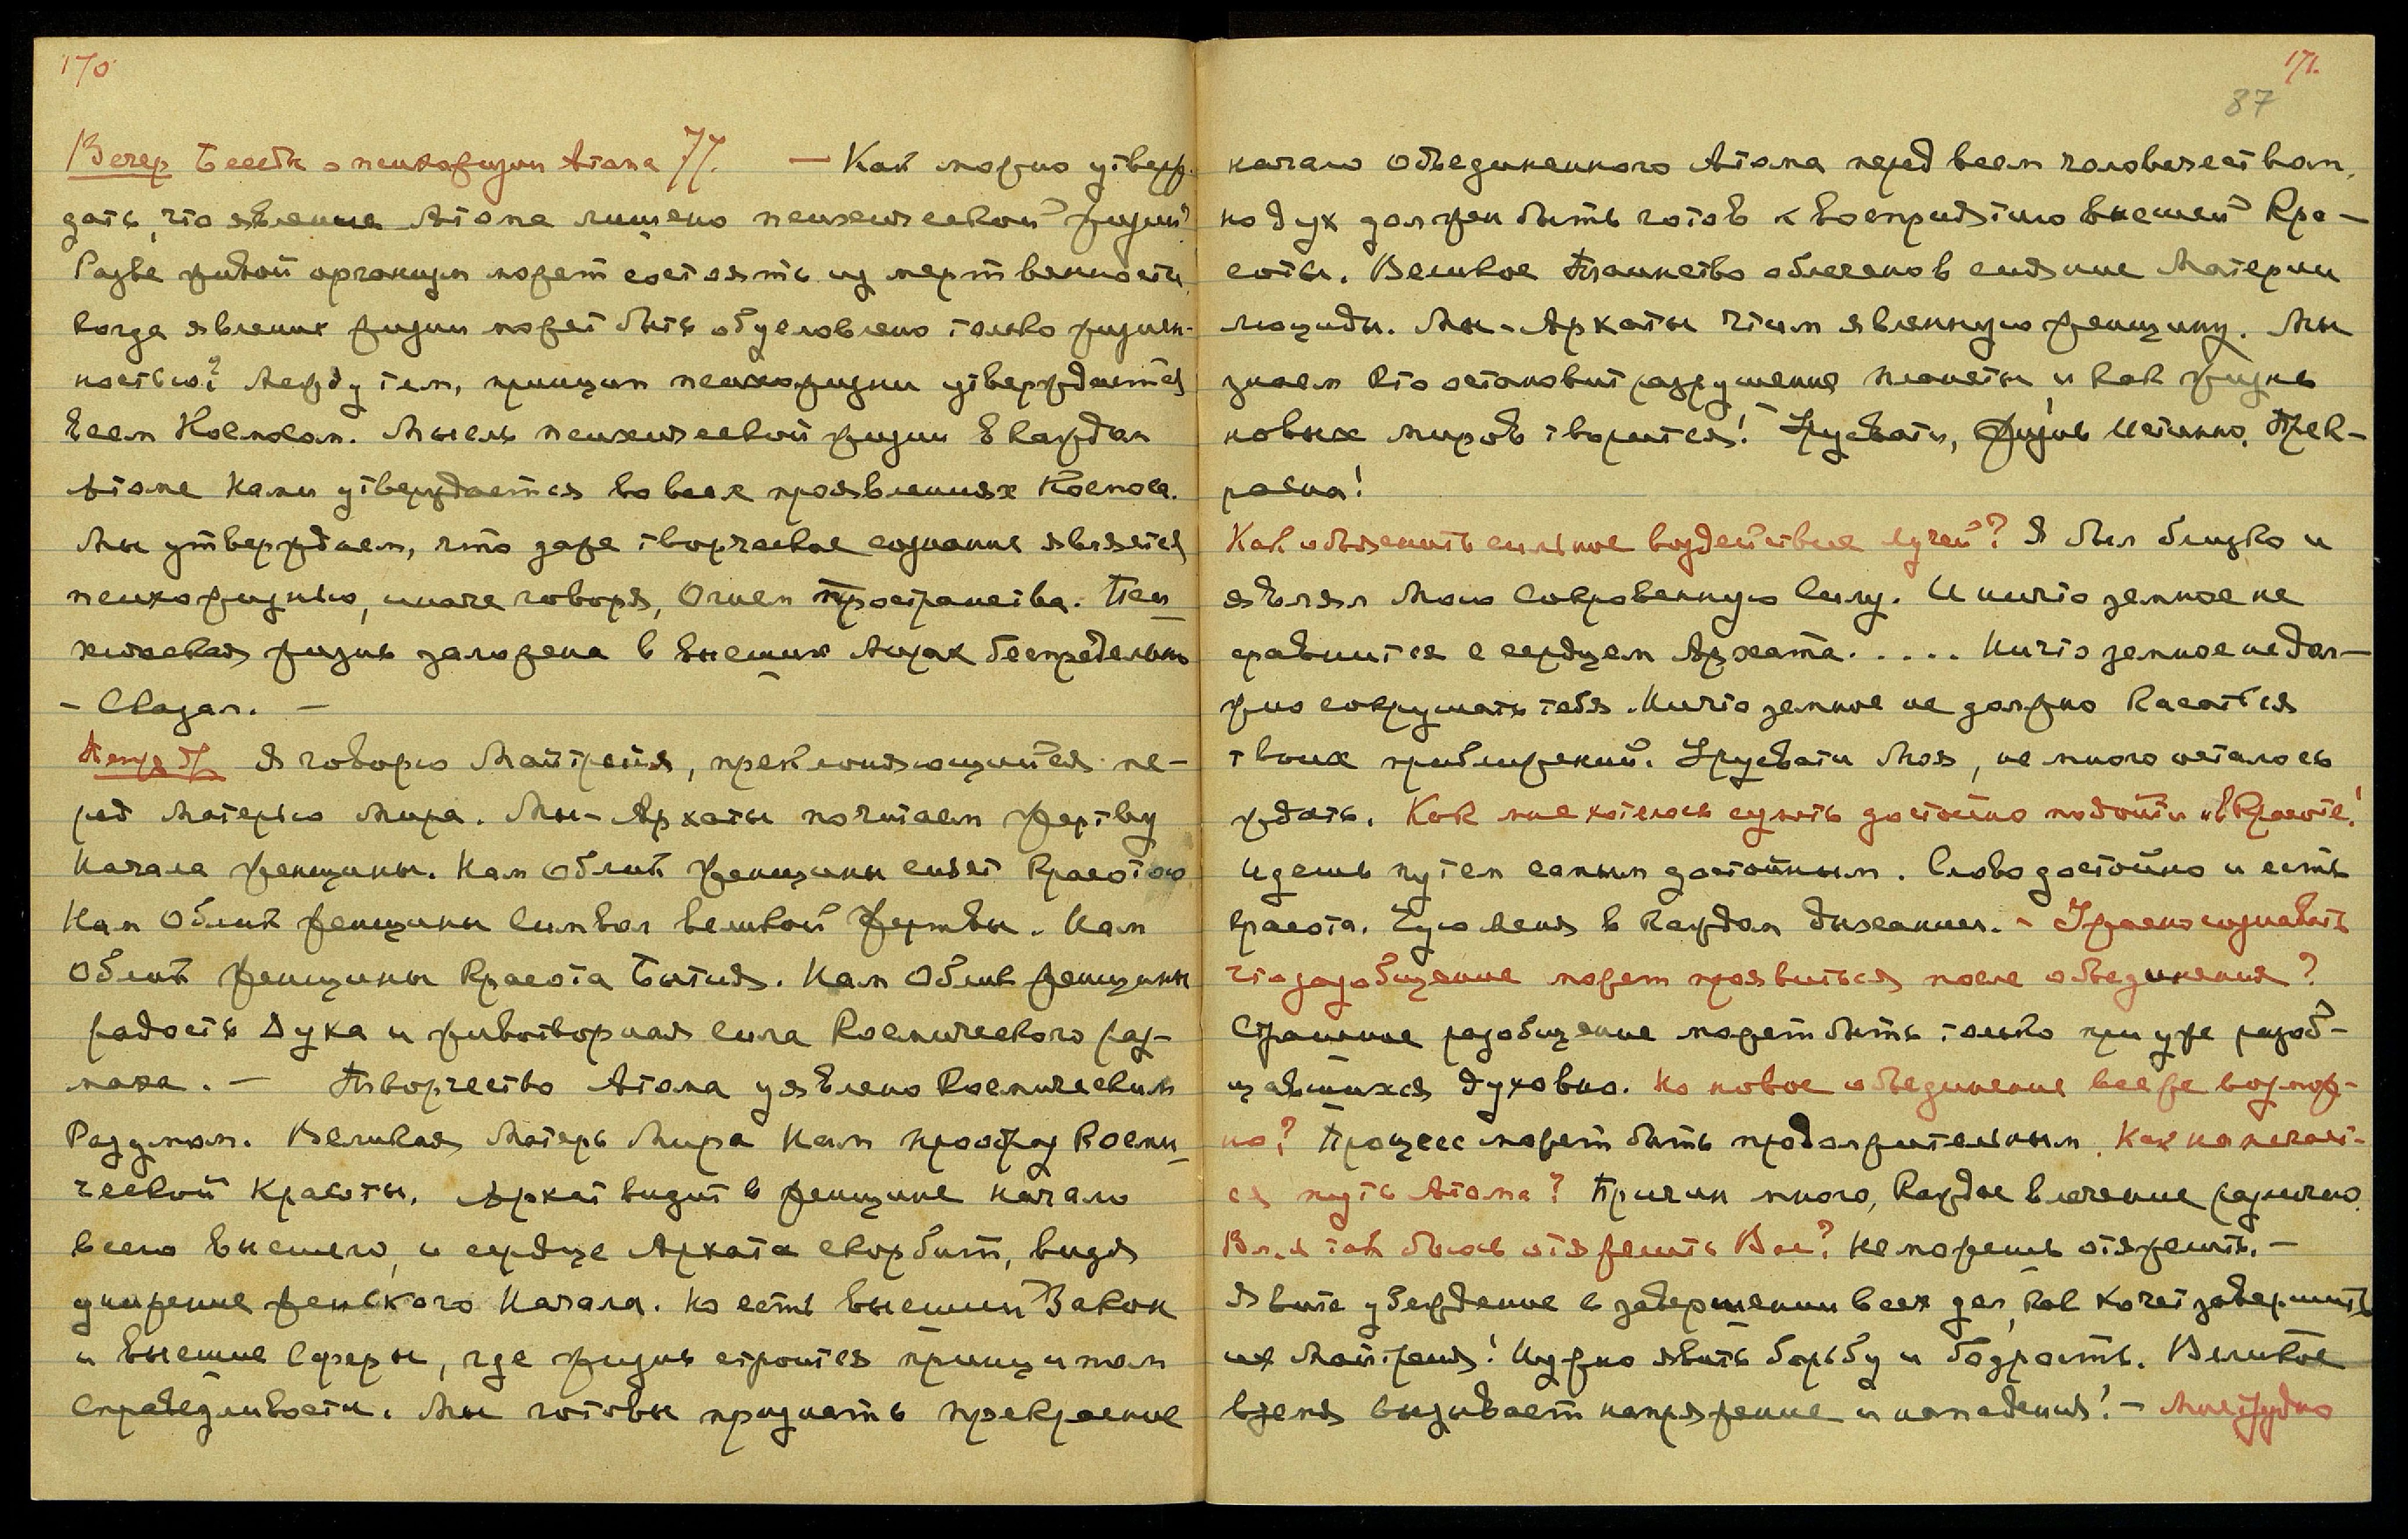 170
Вечер Беседы о психожизни Атома 77. — Как можно утверж-
дать, что явление Атома лишено психической жизни?
Разве живой организм может состоять из мертвенности
когда явление жизни может быть обусловлено только жизнен-
ностью? Между тем, принцип психожизни утверждается
всем Космосом. Мысль психической жизни в каждом
Атоме Нами утверждается во всех проявлениях Космоса.
Мы утверждаем, что даже творческое сознание является
психожизнью, иначе говоря, Огнем Пространства. Пси-
хическая жизнь заложена в высших Мирах беспредельно
- Сказал. —
Я говорю Майтрейя, преклоняющийся пе-
ред Матерью Мира. Мы - Архаты почитаем жертву
Начала женщины. Нам Облик женщины сияет Красотою
Нам Облик женщины Символ великой жертвы. Нам
Облик женщины Красота Бытия. Нам Облик женщины
радость Духа и животворная сила Космического раз-
маха. — Творчество Атома уявлено Космическим
Разумом. Великая Матерь Мира Нам прообраз Косми-
ческой Красоты. Архат видит в женщине начало
всего высшего, и сердце Архата скорбит, видя
унижение женского Начала. Но есть высший Закон
и высшие Сферы, где жизнь строится принципом
Справедливости. Мы готовы признать прекрасное
171.
87
начало объединенного Атома перед всем человечеством,
но дух должен быть готов к восприятию высшей Кра-
соты. Великое Таинство облечено в сияние Материи
люциды. Мы - Архаты чтим явленную женщину. Мы
знаем кто остановит разрушение планеты и как жизнь
новых миров творится! Урусвати, жизнь истинно Прек-
расна!
Как объяснить сильное воздействие лучей? Я был близко и
являл Мою Сокровенную Силу. И ничто земное не
сравнится с сердцем Архата. .... Ничто земное не дол-
жно сокрушать тебя. Ничто земное не должно касаться
твоих приближений. Урусвати Моя, не много осталось
ждать. Как мне хотелось суметь достойно подойти и в Красоте!
Идешь путем самым достойным. Слово достойно и есть
красота. Чую Меня в каждом дыхании. - Ужасно сознавать
что разобщение может проявиться после объединения?
Страшное разобщение может быть только при уже разоб-
щавшихся духовно. Но новое объединение все же возмож-
но? Процесс может быть продолжительным. Как намечает-
ся путь Атома? Причин много, каждое влечение различно.
Вл. я так боюсь отяжелить Вас? Не можешь отяжелить. —
Явите убеждение в завершении всех дел, как хочет завершить
их Майтрейя! Нужно явить борьбу и бодрость. Великое
время вызывает напряжение и нападения! - Мне трудно